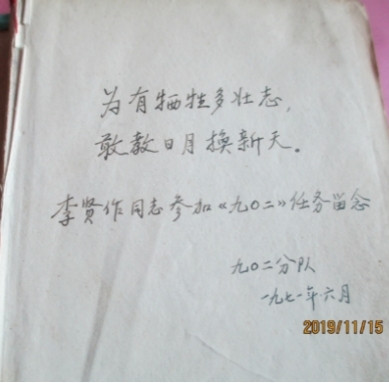 为有牺牲多壮志，
敢教日月换新天。
李贤作同志参加《九〇二》任务留念
九〇二分队
一九七一年六月
2019/11/15